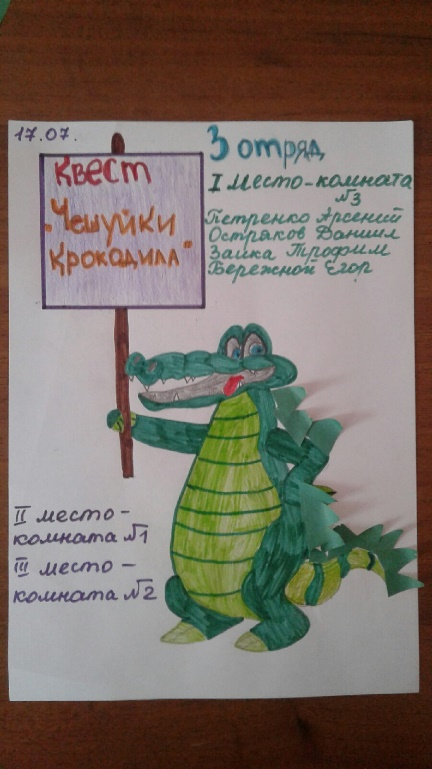 17.07.
3 отряд
Квест
"Чешуйки
Крокодила"
I место-комната
№3
Петренко Арсений
Остряков Даниил
Заика Трофим
Бережной Егор
II место-
комната №1
III место-
комната №2